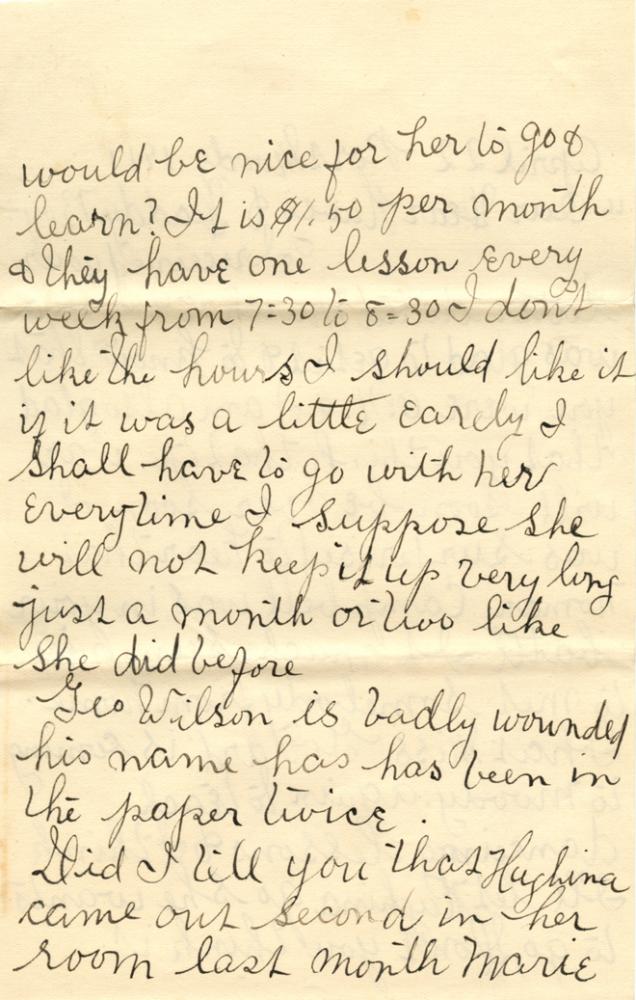 would be nice for her to go &
learn? It is $1.50 per month
& they have one lesson every
week from 7=30 to 8=30 I don't
like the hours I should like it
if it was a little earely I
shall have to go with her
everytime I suppose she
will not keep it up very long
just a month or two like
she did before
Geo Wilson is badly wounded
his name has has been in
the paper twice.
Did I tell you that Hughina
came out second in her
room last month Marie